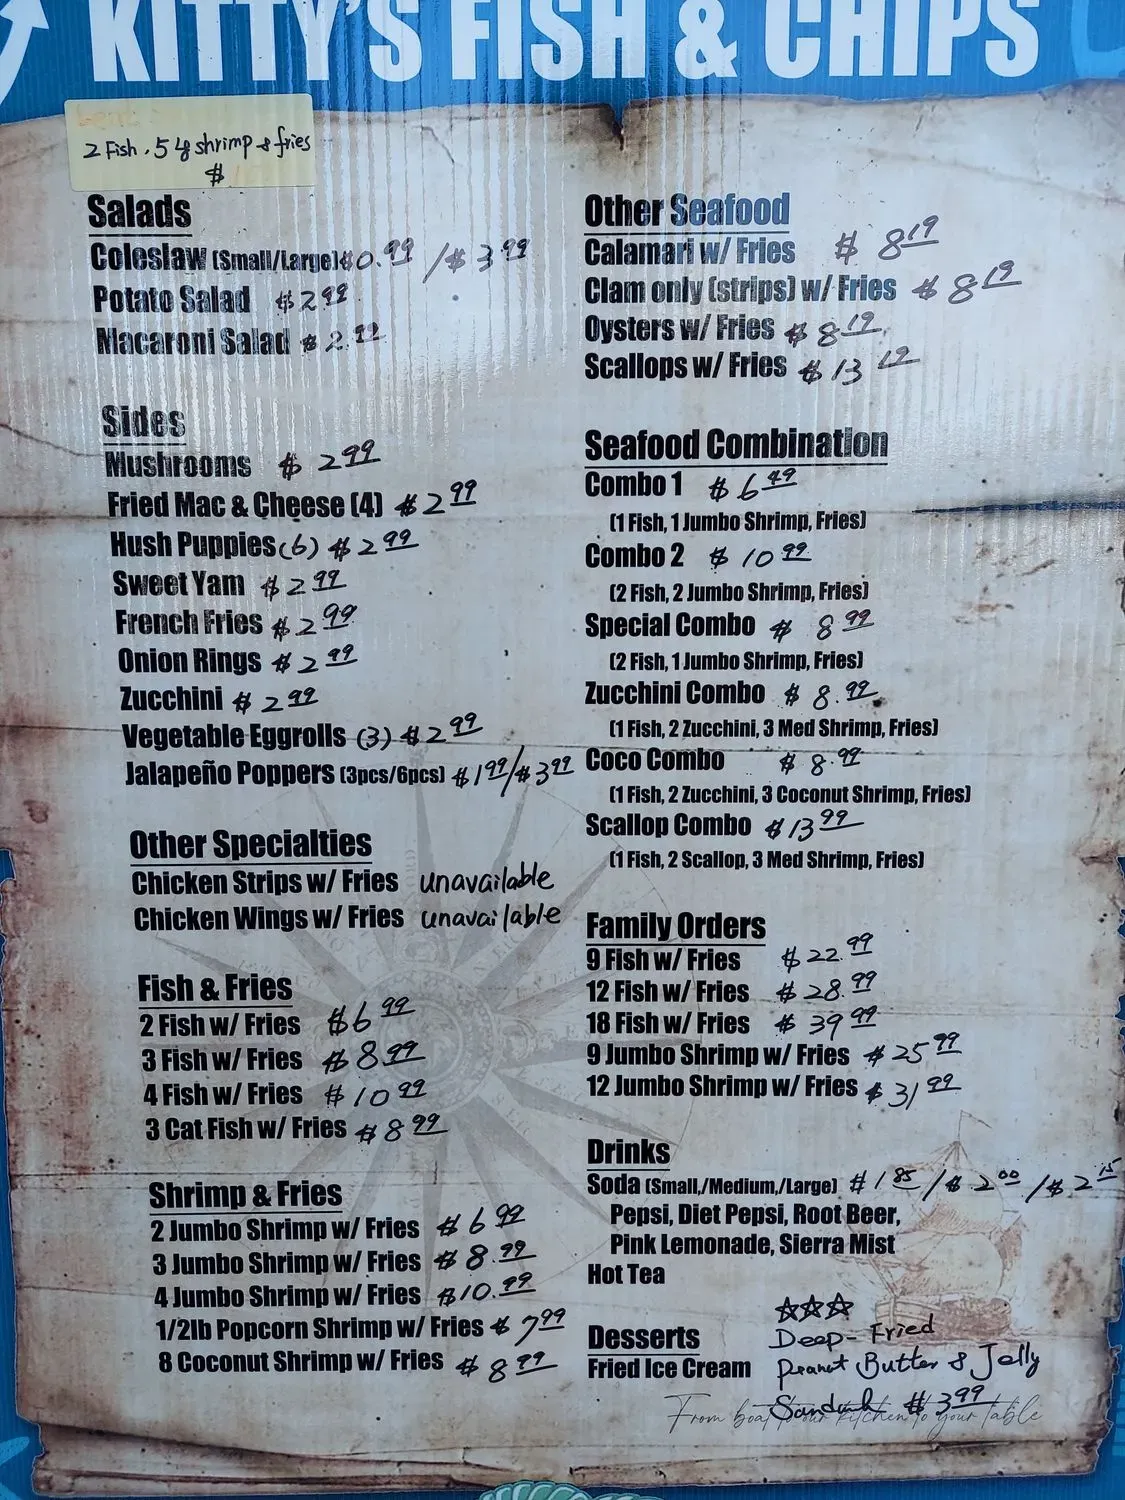 KITTY'S FISH & CHIPS
2 Fish . 5 shrimp & fries
$
Salads
Coleslaw (Small/Large) $0.99 / $3.99
Potato Salad $2.99
Macaroni Salad $2.99
Sides
Mushrooms $2.99
Fried Mac & Cheese (4) $2.99
Hush Puppies (6) $2.99
Sweet Yam $2.99
French Fries $2.99
Onion Rings $2.99
Zucchini $2.99
Vegetable Eggrolls (3) $2.99
Jalapeño Poppers (3pcs/6pcs) $1.99/$3.99
Other Specialties
Chicken Strips w/ Fries unavailable
Chicken Wings w/ Fries unavailable
Fish & Fries
2 Fish w/ Fries $6.99
3 Fish w/ Fries $8.99
4 Fish w/ Fries $10.99
3 Cat Fish w/ Fries $8.99
Shrimp & Fries
2 Jumbo Shrimp w/ Fries $6.99
3 Jumbo Shrimp w/ Fries $8.99
4 Jumbo Shrimp w/ Fries $10.99
1/2lb Popcorn Shrimp w/ Fries $7.99
8 Coconut Shrimp w/ Fries $8.99
Other Seafood
Calamari w/ Fries $8.19
Clam only (strips) w/ Fries $8.19
Oysters w/ Fries $8.19
Scallops w/ Fries $13.19
Seafood Combination
Combo 1 $6.49
(1 Fish, 1 Jumbo Shrimp, Fries)
Combo 2 $10.99
(2 Fish, 2 Jumbo Shrimp, Fries)
Special Combo $8.99
(2 Fish, 1 Jumbo Shrimp, Fries)
Zucchini Combo $8.99
(1 Fish, 2 Zucchini, 3 Med Shrimp, Fries)
Coco Combo $8.99
(1 Fish, 2 Zucchini, 3 Coconut Shrimp, Fries)
Scallop Combo $13.99
(1 Fish, 2 Scallop, 3 Med Shrimp, Fries)
Family Orders
9 Fish w/ Fries $22.99
12 Fish w/ Fries $28.99
18 Fish w/ Fries $39.99
9 Jumbo Shrimp w/ Fries $25.99
12 Jumbo Shrimp w/ Fries $31.99
Drinks
Soda (Small,/Medium,/Large) $1.85 / $2.00 / $2.15
Pepsi, Diet Pepsi, Root Beer,
Pink Lemonade, Sierra Mist
Hot Tea
Desserts
Fried Ice Cream
☆☆☆
Deep-Fried
Peanut Butter & Jelly
Sandwich $3.99
From boat to our kitchen to your table